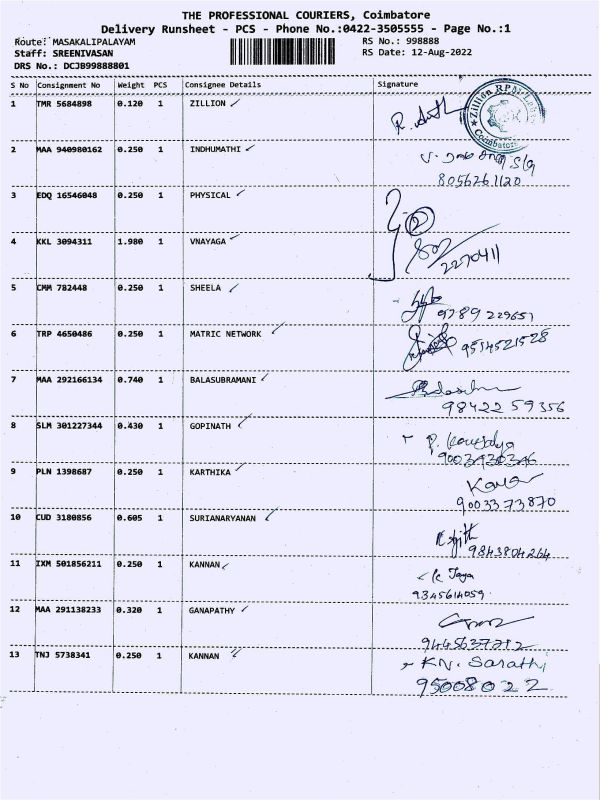 THE PROFESSIONAL COURIERS, Coimbatore
Delivery Runsheet - PCS - Phone No.:0422-3505555 - Page No.:1
Route: MASAKALIPALAYAM RS No.: 998888
Staff: SREENIVASAN RS Date: 12-Aug-2022
DRS No.: DCJB99888801
S No Consignment No Weight PCS Consignee Details Signature
1 TMR 5684898 0.120 1 ZILLION
2 MAA 940980162 0.250 1 INDHUMATHI
8056261120
3 EDQ 16546048 0.250 1 PHYSICAL
2
4 KKL 3094311 1.980 1 VNAYAGA
2270411
5 CMM 782448 0.250 1 SHEELA
9789229651
6 TRP 4650486 0.250 1 MATRIC NETWORK
9514521528
7 MAA 292166134 0.740 1 BALASUBRAMANI
98422 59356
8 SLM 301227344 0.430 1 GOPINATH
9 PLN 1398687 0.250 1 KARTHIKA
9003373870
10 CUD 3180856 0.605 1 SURIANARYANAN
9843804264
11 IXM 501856211 0.250 1 KANNAN
Jaya
9345614059
12 MAA 291138233 0.320 1 GANAPATHY
9445637712
13 TNJ 5738341 0.250 1 KANNAN
KN. Sarathi
95008022